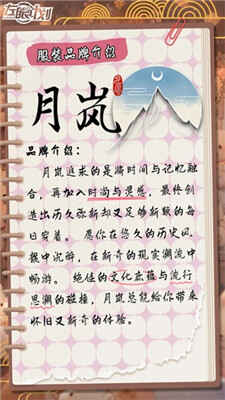 服装品牌介绍
月岚
品牌介绍：
月岚追求的是将时间与记忆融
合，再加入时尚与灵感，最终创
造出历久弥新却又足够新颖的每
日穿着。愿你在悠久的历史风
貌中沉醉，在新奇的现实潮流中
畅游。绝佳的文化底蕴与流行
思潮的碰撞，月岚总能给你带来
怀旧又新奇的体验。